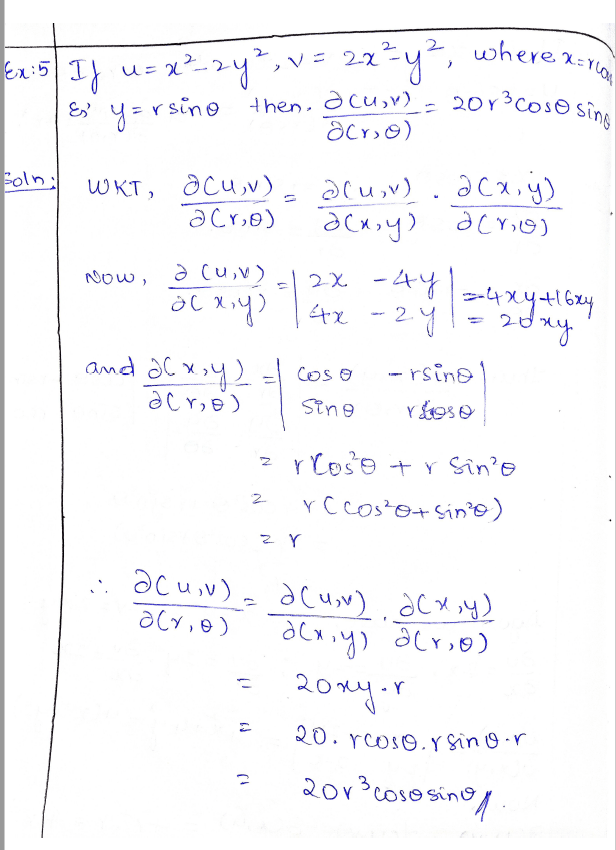 Ex:5 If u = x² - 2y², v = 2x² - y², where x = rcosθ
& y = r sinθ then. ∂(u,v)/∂(r,θ) = 20r³cosθ sinθ
Soln: WKT, ∂(u,v)/∂(r,θ) = ∂(u,v)/∂(x,y) . ∂(x,y)/∂(r,θ)
Now, ∂(u,v)/∂(x,y) = | 2x -4y | = -4xy+16xy
| 4x -2y | = 20xy
and ∂(x,y)/∂(r,θ) = | cosθ -rsinθ |
| sinθ rcosθ |
= r cos²θ + r sin²θ
= r(cos²θ + sin²θ)
= r
∴ ∂(u,v)/∂(r,θ) = ∂(u,v)/∂(x,y) . ∂(x,y)/∂(r,θ)
= 20xy.r
= 20. rcosθ. r sinθ.r
= 20r³cosθsinθ //.